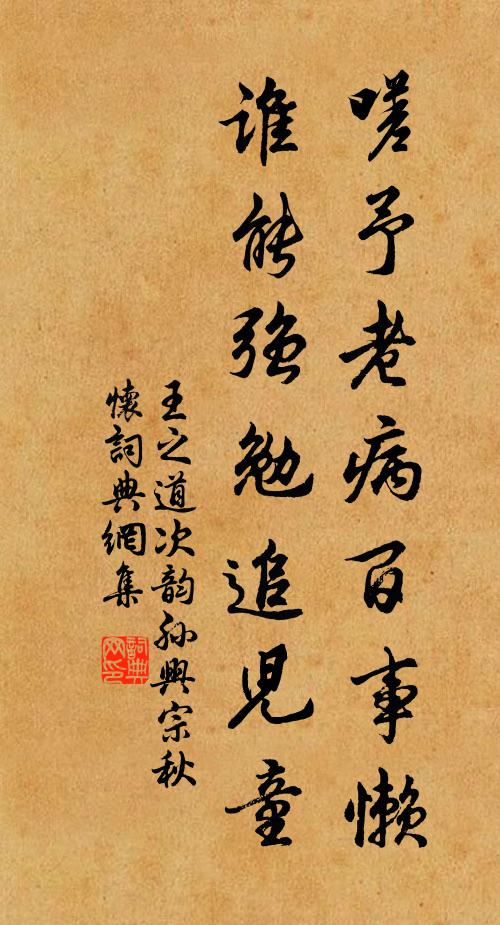 嗟予老病百事懶
誰能強勉追兒童
王之道次韵孙興宗秋
懷詞典網集
詞典
网印